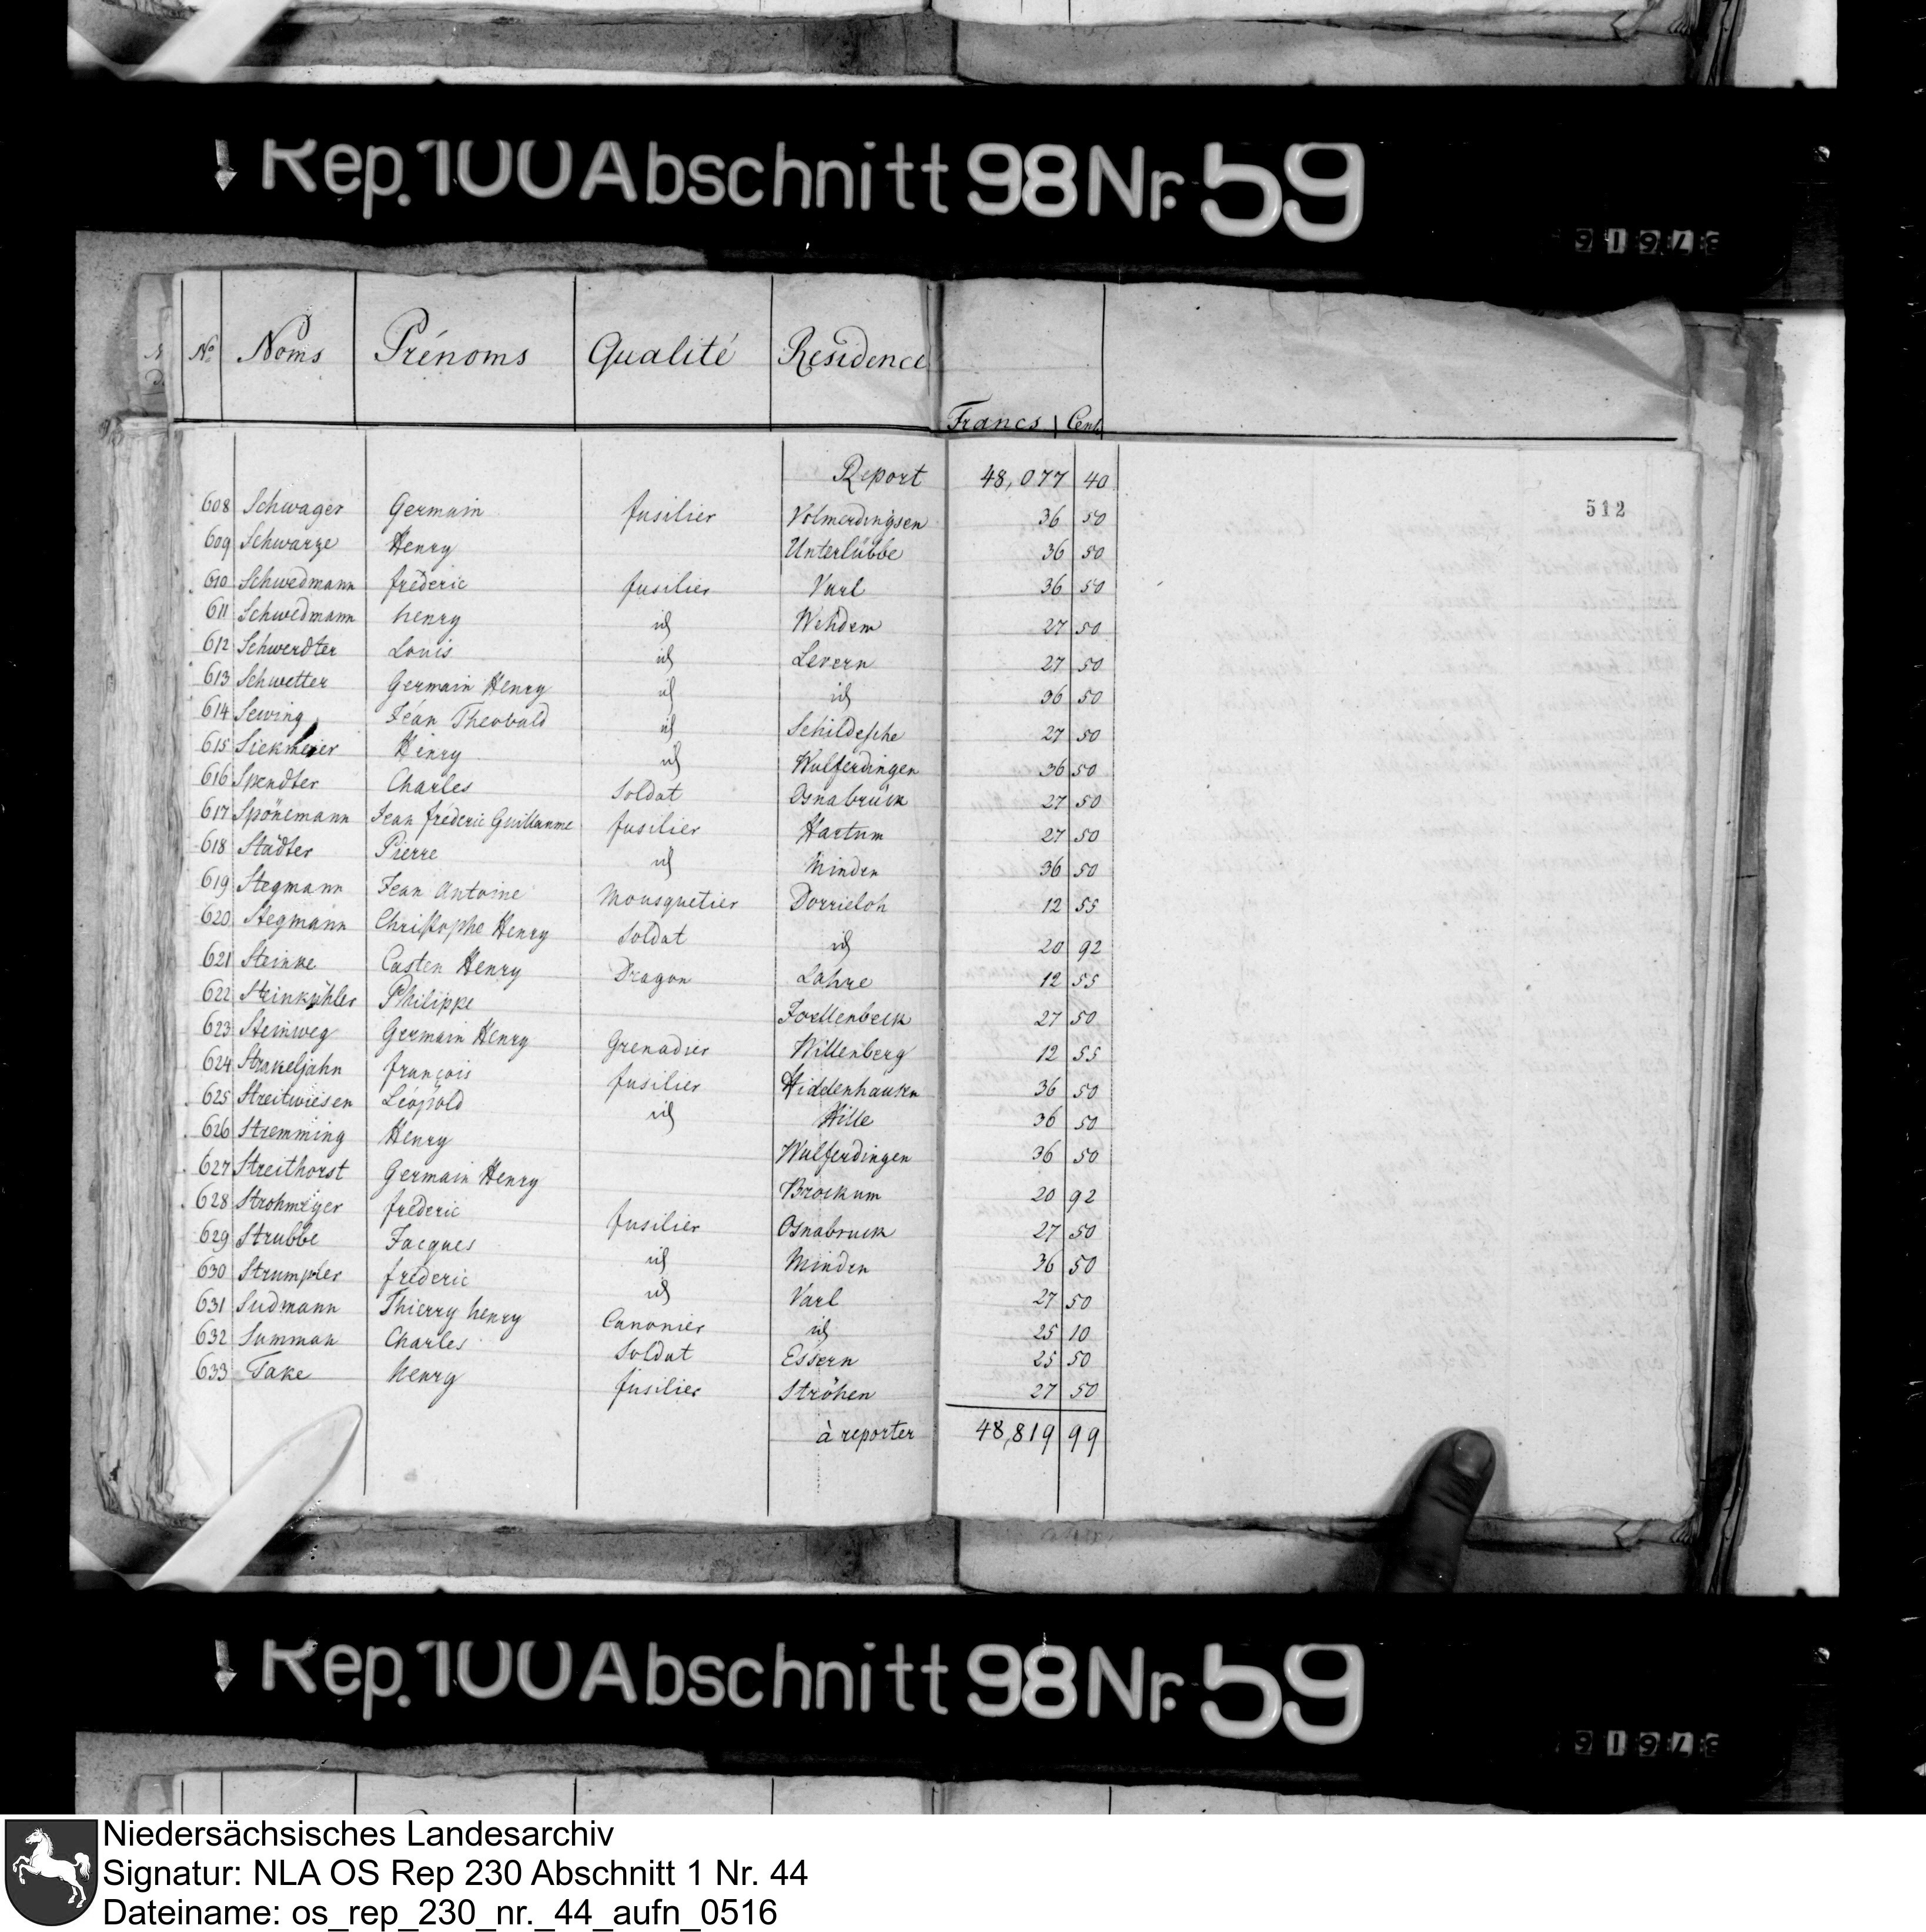 Rep. 100 Abschnitt 98 Nr. 59
No Noms Prénoms Qualité Residence Francs Cent.
Report 48,077 40
512
608 Schwager Germain fusilier Volmerdingsen 36 50
609 Schwarze Henry Unterlübbe 36 50
610 Schwedmann fréderic fusilier Varl 36 50
611 Schwedmann henry id Wehdem 27 50
612 Schwerdter Louis id Levern 27 50
613 Schwetter Germain Henry id id 36 50
614 Sewing Jéan Theobald id Schildesche 27 50
615 Siekmeier Henry id Wulferdingen 36 50
616 Spendter Charles Soldat Osnabrück 27 50
617 Spönemann Jean fréderic Guillaume fusilier Hartum 27 50
618 Städter Pierre id Minden 36 50
619 Stegmann Jean Antoine Mousquetier Dorrieloh 12 55
620 Stegmann Christophe Henry Soldat id 20 92
621 Steinke Casten Henry Dragon Lahre 12 55
622 Steinkühler Philippe Joellenbeck 27 50
623 Steinweg Germain Henry Grenadier Willenberg 12 55
624 Strakeljahn françois fusilier Hiddenhausen 36 50
625 Streitwiesen Léopold id Hille 36 50
626 Stremming Henry Wulferdingen 36 50
627 Streithorst Germain Henry Brockum 20 92
628 Strohmeyer fréderic fusilier Osnabruck 27 50
629 Strubbe Jacques id Minden 36 50
630 Strumpler fréderic id Varl 27 50
631 Sudmann Thierry henry Canonier id 25 10
632 Summan Charles Soldat Essern 25 50
633 Take henry fusilier Ströhen 27 50
à reporter 48,819 99
Rep. 100 Abschnitt 98 Nr. 59
Niedersächsisches Landesarchiv
Signatur: NLA OS Rep 230 Abschnitt 1 Nr. 44
Dateiname: os_rep_230_nr._44_aufn_0516